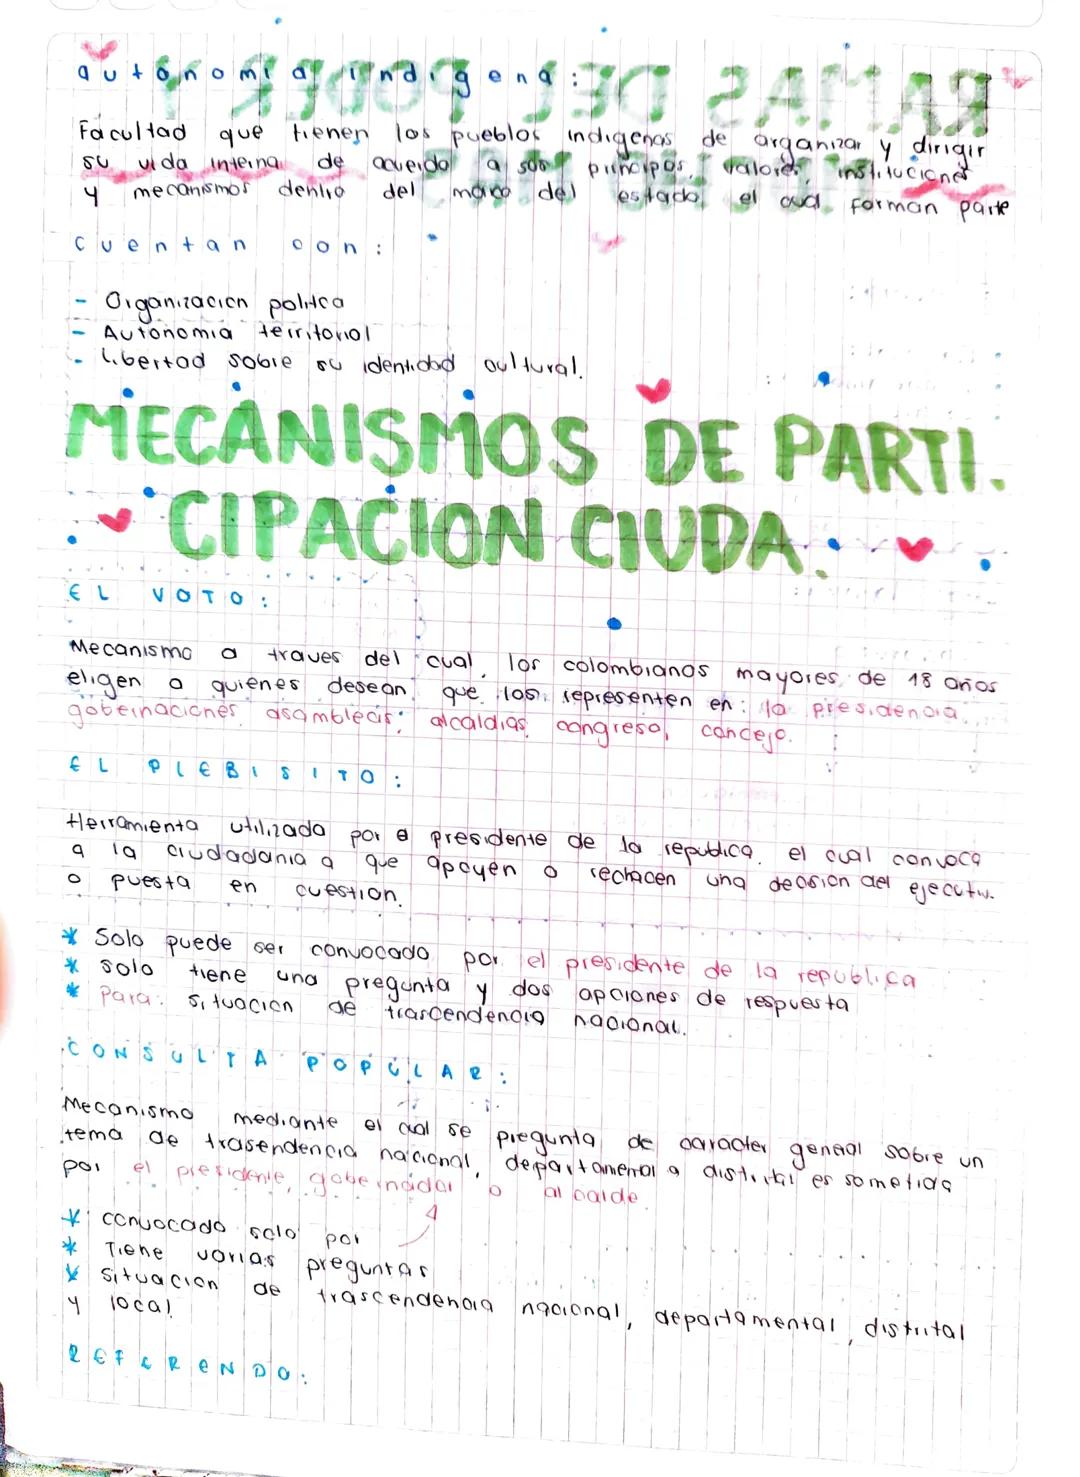 autonomia indigena:
Facultad que tienen los pueblos indigenas de organizar y dirigir
su vida interna de acuerdo a sus principos, valores, instituciones
y mecanismos dentro del marco del estado el cual forman parte
cuentan con:
- Organizacion politca
- Autonomia territorial
- libertad sobre su identidad cultural.
MECANISMOS DE PARTI.
CIPACION CIUDA.
EL VOTO:
Mecanismo a traves del cual, los colombianos mayores de 18 años
eligen a quienes desean que los representen en: la presidencia,
gobernaciones, asambleas, alcaldias, congreso, concejo.
EL PLEBISITO:
Herramienta utilizada por el presidente de la republica, el cual convoca
a la ciudadania a que apoyen o rechacen una decision del ejecutiv.
o puesta en cuestion.
* Solo puede ser convocado por el presidente de la republica
* solo tiene una pregunta y dos opciones de respuesta
* Para: situacion de trascendencia nacional.
CONSULTA POPULAR:
Mecanismo mediante el cual se pregunta de caracter general sobre un
tema de trasendencia nacional, departamental o distrital es sometida
por el presidente, gobernador o alcalde.
* convocado solo por
* Tiene varias preguntas
* situacion de trascendencia nacional, departamental, distrital
y local
REFERENDO: